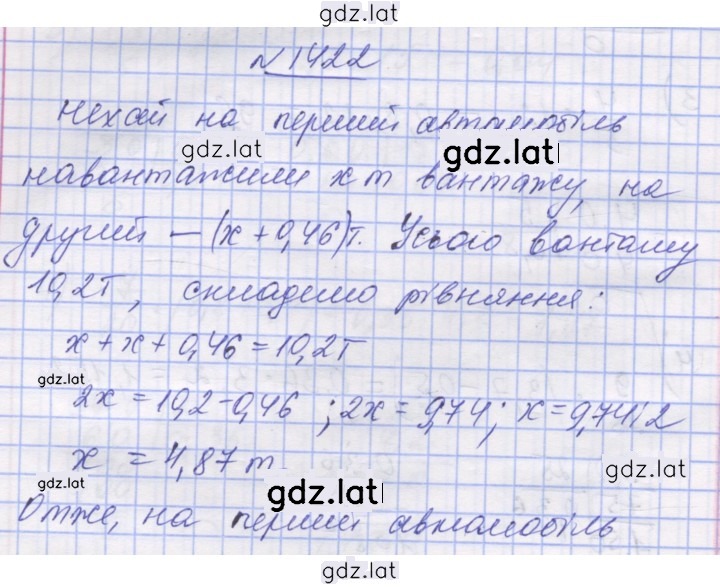 gdz.lat
N 1422
Нехай на перший автомобіль
gdz.lat gdz.lat
навантажили x т вантажу, на
другий – (x + 0,46)т. Усього вантажу
10,2т, складемо рівняння:
x + x + 0,46 = 10,2т
gdz.lat
2x = 10,2 - 0,46 ; 2x = 9,74 ; x = 9,74:2
x = 4,87 т
gdz.lat gdz.lat gdz.lat
Отже, на перший автомобіль
gdz.lat